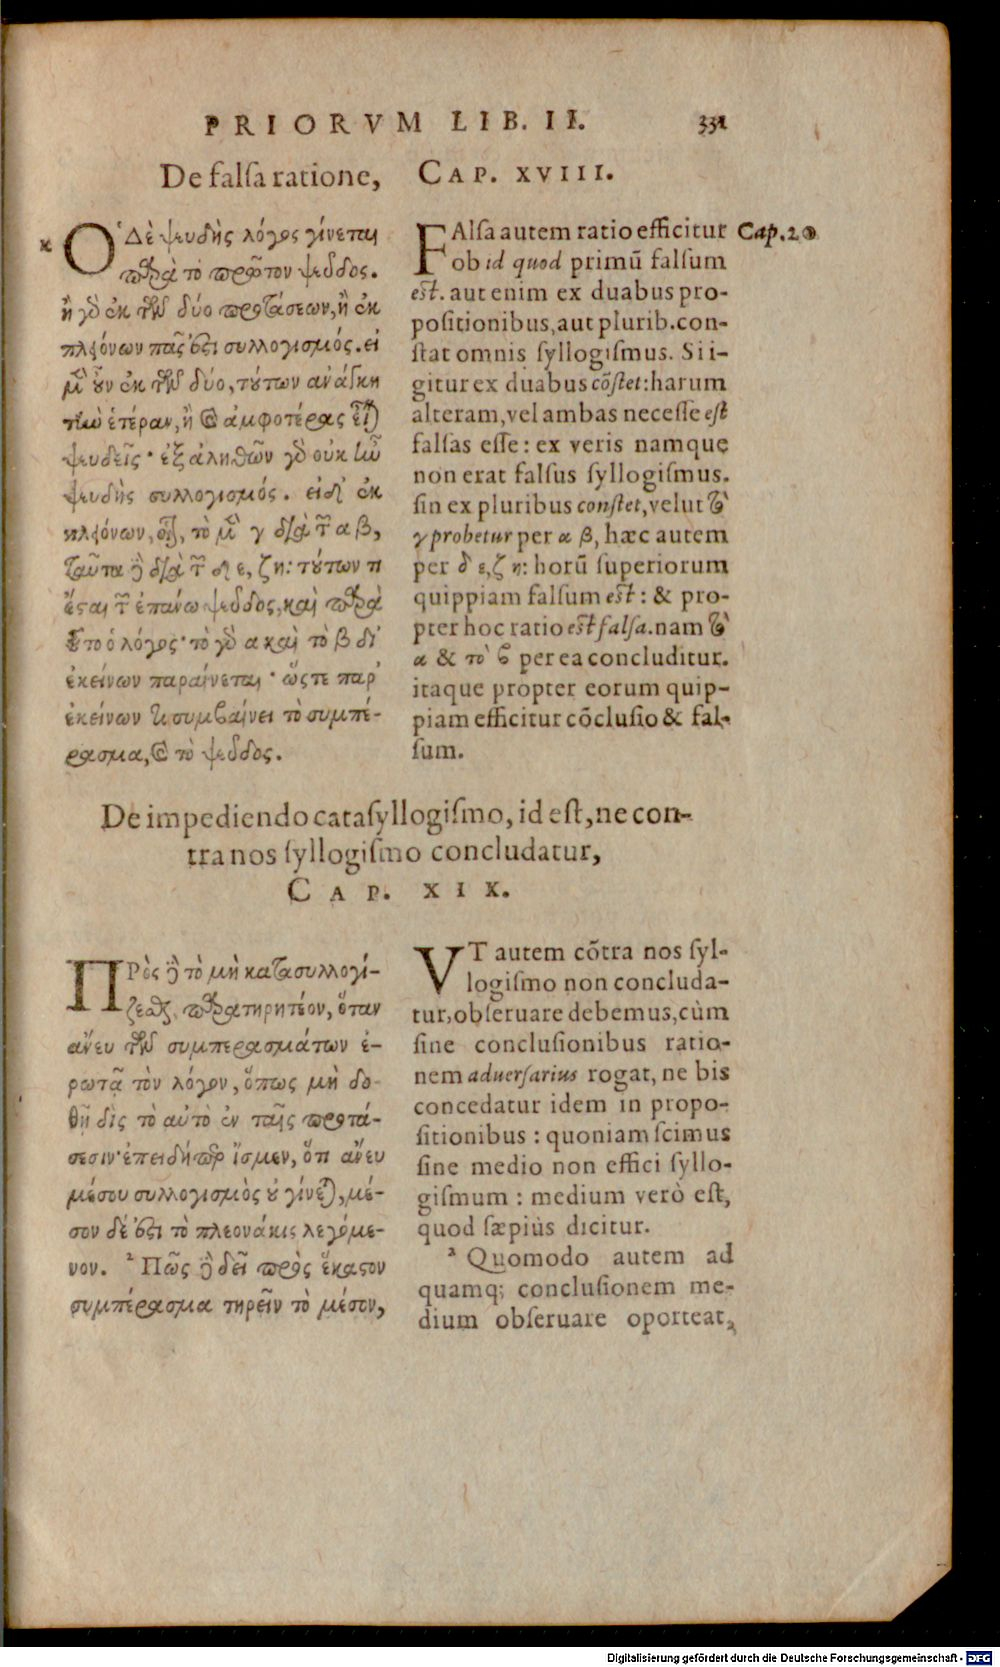 PRIORVM LIB. II. 331
De falſa ratione, CAP. XVIII.
Ὁ Δὲ ψευδὴς λόγος γίνεται
παρὰ τὸ πρῶτον ψεῦδος.
ἢ γὸ ἐκ τῶν δύο προτάσεων, ἢ ἐκ
πλειόνων πᾶς ἐστι συλλογισμός. εἰ
μὲν οὖν ἐκ τῶν δύο, τούτων ἀνάγκη
τὴν ἑτέραν, ἢ καὶ ἀμφοτέρας εἶναι
ψευδεῖς· ἐξ ἀληθῶν γὸ οὐκ ἦν
ψευδὴς συλλογισμός. εἰ δ' ἐκ
πλειόνων, οἷον, τὸ μὲν γ διὰ τῶν α β,
ταῦτα δὲ διὰ τῶν δ ε, ζ η: τούτων τι
ἔσται τῶν ἐπάνω ψεῦδος, καὶ παρὰ
τοῦτο ὁ λόγος· τὸ γὸ α καὶ τὸ β δι'
ἐκείνων παραίνεται· ὥστε παρ'
ἐκείνων τι συμβαίνει τὸ συμπέ-
ρασμα, καὶ τὸ ψεῦδος.
FAlſa autem ratio efficitur Cap. 20
ob id quod primū falſum
eſt. aut enim ex duabus pro-
poſitionibus, aut plurib. con-
ſtat omnis ſyllogiſmus. Si i-
gitur ex duabus cōſtet: harum
alteram, vel ambas neceſſe eſt
falſas eſſe: ex veris namque
non erat falſus ſyllogiſmus.
ſin ex pluribus conſtet, velut τὸ
γ probetur per α β, hæc autem
per δ ε, ζ η: horū ſuperiorum
quippiam falſum eſt: & pro-
pter hoc ratio eſt falſa. nam τὸ
α & τὸ β per ea concluditur.
itaque propter eorum quip-
piam efficitur cōcluſio & fal-
ſum.
De impediendo cataſyllogiſmo, id eſt, ne con-
tra nos ſyllogiſmo concludatur,
CAP. XIX.
ΠΡὸς δὲ τὸ μὴ κατασυλλογί-
ζεσθαι, παρατηρητέον, ὅταν
ἄνευ τῶν συμπερασμάτων ἐ-
ρωτᾷ τὸν λόγον, ὅπως μὴ δο-
θῇ δὶς τὸ αὐτὸ ἐν ταῖς προτά-
σεσιν· ἐπειδήπερ ἴσμεν, ὅτι ἄνευ
μέσου συλλογισμὸς οὐ γίνεται, μέ-
σον δέ ἐστι τὸ πλεονάκις λεγόμε-
νον. ² Πῶς δὲ δεῖ πρὸς ἕκαστον
συμπέρασμα τηρεῖν τὸ μέσον,
VT autem cōtra nos ſyl-
logiſmo non concluda-
tur, obſeruare debemus, cùm
ſine concluſionibus ratio-
nem aduerſarius rogat, ne bis
concedatur idem in propo-
ſitionibus: quoniam ſcimus
ſine medio non effici ſyllo-
giſmum: medium verò eſt,
quod ſæpiùs dicitur.
² Quomodo autem ad
quamq; concluſionem me-
dium obſeruare oporteat,
Digitalisierung gefördert durch die Deutsche Forschungsgemeinschaft - DFG